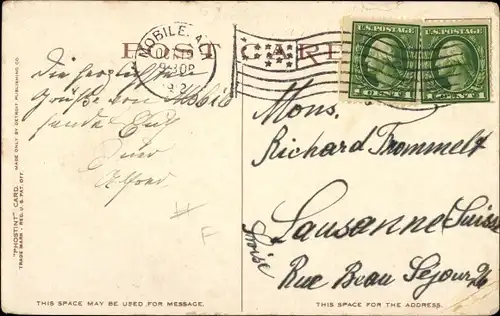 POST CARD
MOBILE, ALA
U.S. POSTAGE
U.S. POSTAGE
1 CENT 1
1 CENTS 1
Die herzlichsten
Grüße von Mobile
sendet Euch
Euer
Alfred
Mons.
Richard Trommelt
Lausanne Suisse
Suisse
Rue Beau Sejour 26
F
"PHOSTINT" CARD. MADE ONLY BY DETROIT PUBLISHING CO.
TRADE MARK - REG. U.S. PAT. OFF.
THIS SPACE MAY BE USED FOR MESSAGE.
THIS SPACE FOR THE ADDRESS.